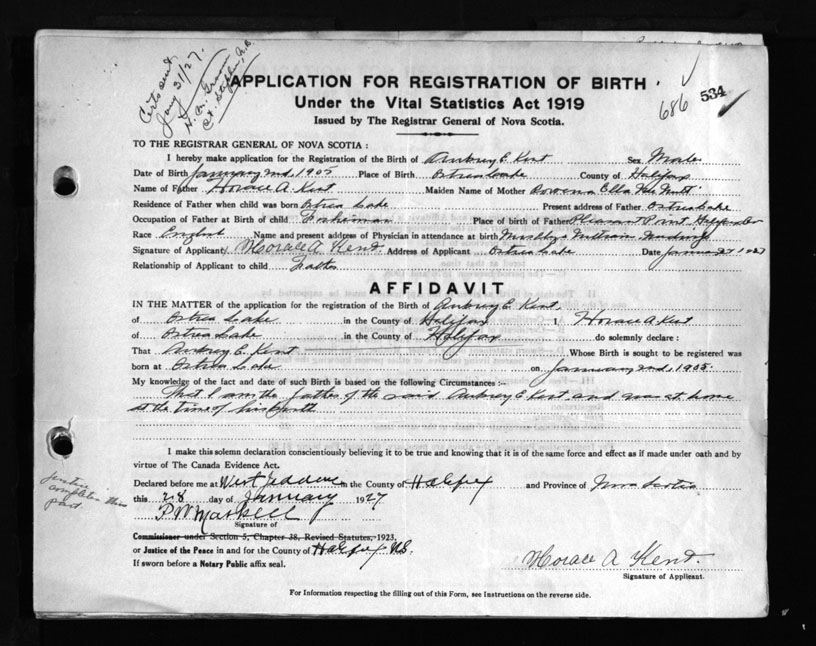 Certs sent
Jany 31/27.
686 534
APPLICATION FOR REGISTRATION OF BIRTH
Under the Vital Statistics Act 1919
Issued by The Registrar General of Nova Scotia.
TO THE REGISTRAR GENERAL OF NOVA SCOTIA :
I hereby make application for the Registration of the Birth of Aubrey E. Kent Sex Male
Date of Birth January 2nd, 1905 Place of Birth Ostrea Lake County of Halifax
Name of Father Horace A. Kent Maiden Name of Mother Rowena Ella
Residence of Father when child was born Ostrea Lake Present address of Father Ostrea Lake
Occupation of Father at Birth of child Fisherman Place of birth of Father Pleasant Point
Race English Name and present address of Physician in attendance at birth
Signature of Applicant Horace A Kent Address of Applicant Ostrea Lake Date
Relationship of Applicant to child Father
AFFIDAVIT
IN THE MATTER of the application for the registration of the Birth of Aubrey E. Kent,
of Ostrea Lake in the County of Halifax I, Horace A Kent
of Ostrea Lake in the County of Halifax do solemnly declare :
That Aubrey E. Kent Whose Birth is sought to be registered was
born at Ostrea Lake on January 2nd, 1905.
My knowledge of the fact and date of such Birth is based on the following Circumstances :—
That I am the father of the said Aubrey E Kent and was at home
at the time of his birth
I make this solemn declaration conscientiously believing it to be true and knowing that it is of the same force and effect as if made under oath and by
virtue of The Canada Evidence Act.
Declared before me at West Jeddore in the County of Halifax and Province of Nova Scotia
this 28 day of January 1927
P. W. Maskell
Signature of
Commissioner under Section 5, Chapter 38, Revised Statutes, 1923,
or Justice of the Peace in and for the County of Halifax N.S.
If sworn before a Notary Public affix seal.
Horace A Kent.
Signature of Applicant.
For Information respecting the filling out of this Form, see Instructions on the reverse side.